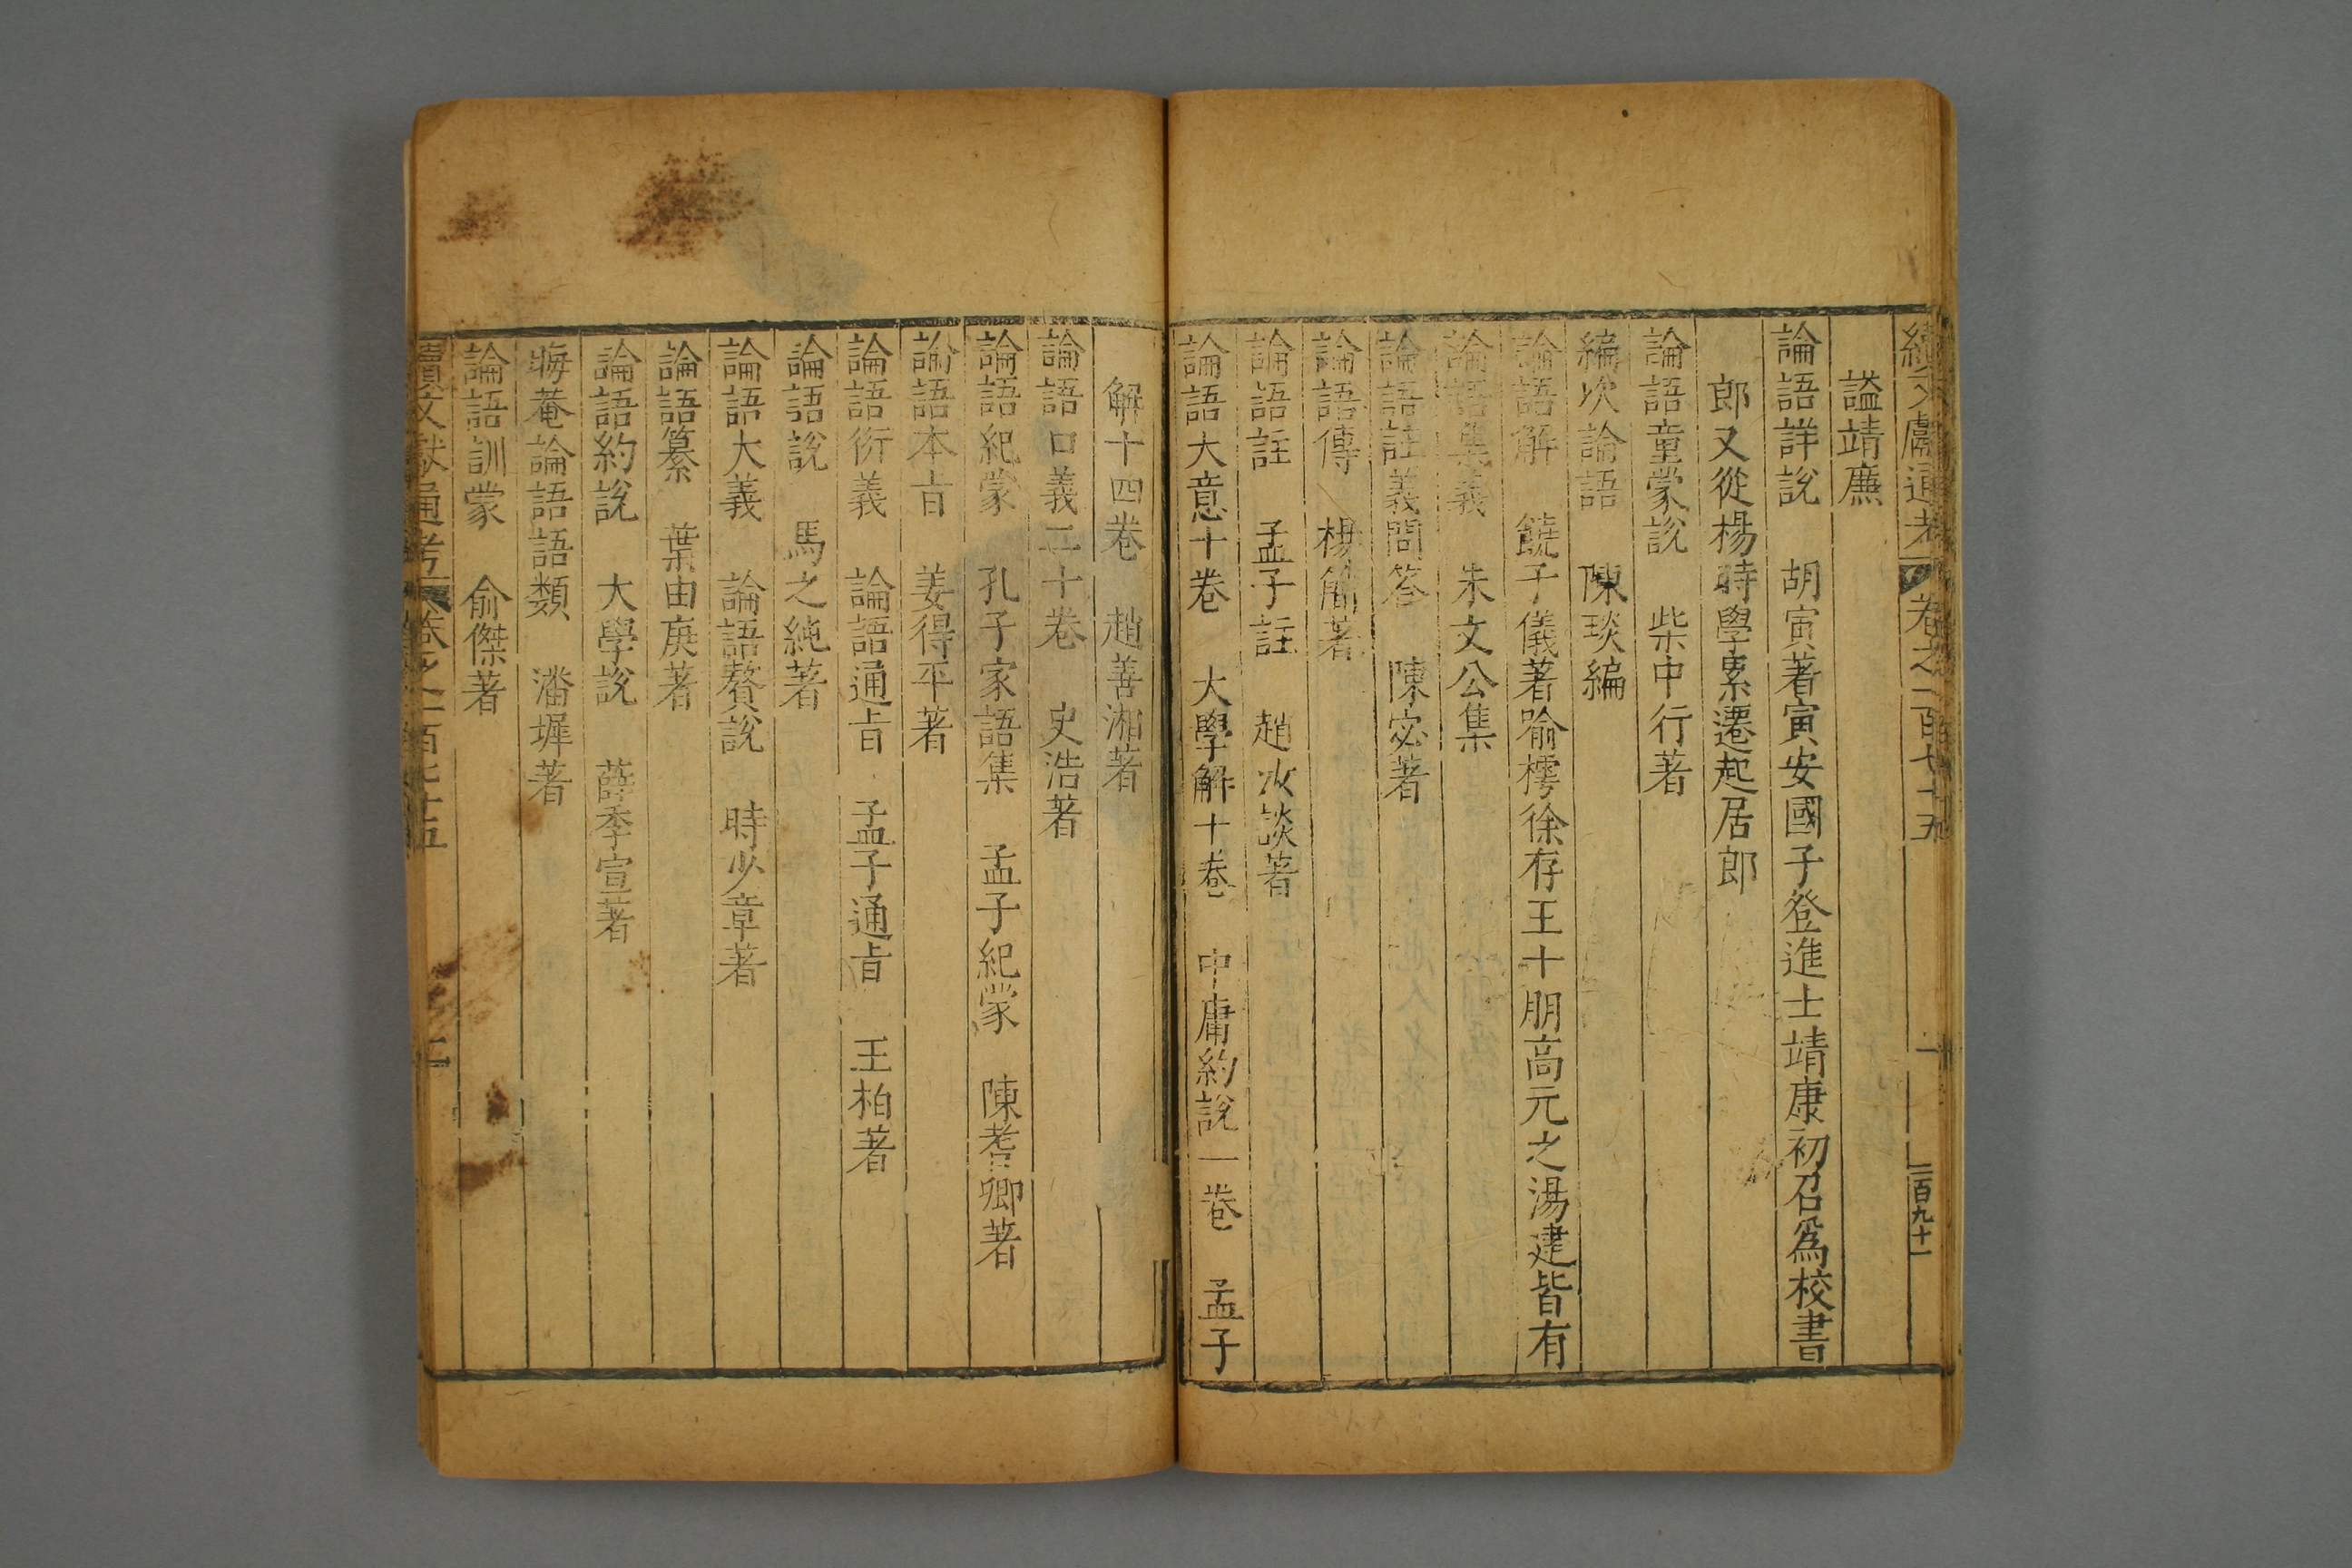 續文獻通考 卷之一百七十五 二百九十一
諡靖廡
論語詳說 胡寅著寅安國子登進士靖康初召爲校書
郎又從楊時學累遷起居郎
論語童蒙說 柴中行著
編次論語 陳琰編
論語解 饒子儀著喻樗徐存王十朋高元之湯建皆有
論語集義 朱文公集
論語註義問答 陳宓著
論語傳 楊簡著
論語註 孟子註 趙汝談著
論語大意十卷 大學解十卷 中庸約說一卷 孟子
解十四卷 趙善湘著
論語口義二十卷 史浩著
論語紀蒙 孔子家語集 孟子紀蒙 陳耆卿著
論語本旨 姜得平著
論語衍義 論語通旨 孟子通旨 王柏著
論語說 馬之純著
論語大義 論語贅說 時少章著
論語纂 葉由庚著
論語約說 大學說 薛季宣著
晦菴論語語類 潘墀著
論語訓蒙 俞傑著
續文獻通考 卷之一百七十五